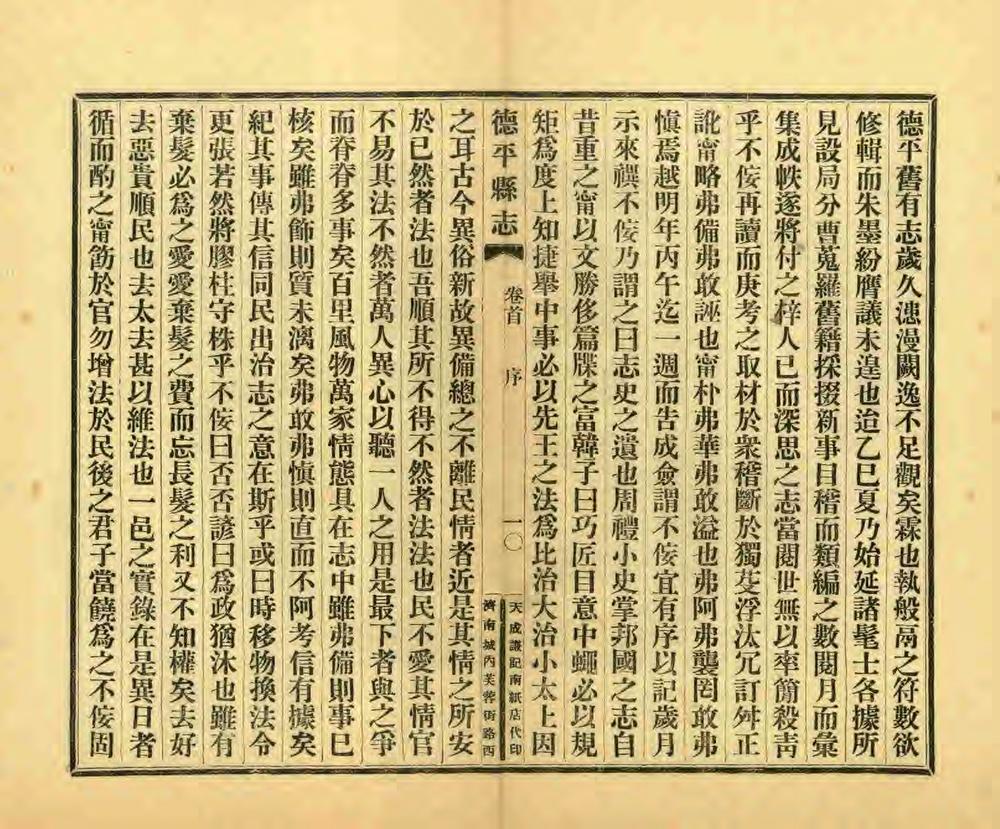 德平舊有志歲久漶漫闕逸不足觀矣霖也執般鬲之符數欲
修輯而朱墨紛膺議未遑也迨乙巳夏乃始延諸髦士各據所
見設局分曹蒐羅舊籍採掇新事日稽而類編之數閱月而彙
集成帙遂將付之梓人已而深思之志當閱世無以率簡殺靑
乎不佞再讀而庚考之取材於衆稽斷於獨芟浮汰冗訂舛正
訛甯略弗備弗敢誣也甯朴弗華弗敢溢也弗阿弗襲罔敢弗
愼焉越明年丙午迄一週而告成僉謂不佞宜有序以記歲月
示來禩不佞乃謂之曰志史之遺也周禮小史掌邦國之志自
昔重之甯以文勝侈篇牒之富韓子曰巧匠目意中繩必以規
矩爲度上知捷舉中事必以先王之法爲比治大治小太上因
德平縣志 卷首 序 一〇
天成議記南紙店代印
濟南城內芙蓉街路西
之耳古今異俗新故異備總之不離民情者近是其情之所安
於已然者法也吾順其所不得不然者法法也民不愛其情官
不易其法不然者萬人異心以聽一人之用是最下者與之爭
而脊脊多事矣百里風物萬家情態具在志中雖弗備則事已
核矣雖弗飾則質未漓矣弗敢弗愼則直而不阿考信有據矣
紀其事傳其信同民出治志之意在斯乎或曰時移物換法令
更張若然將膠柱守株乎不佞曰否否諺曰爲政猶沐也雖有
棄髮必爲之愛愛棄髮之費而忘長髮之利又不知權矣去好
去惡貴順民也去太去甚以維法也一邑之實錄在是異日者
循而酌之甯箌於官勿增法於民後之君子當饒爲之不佞固